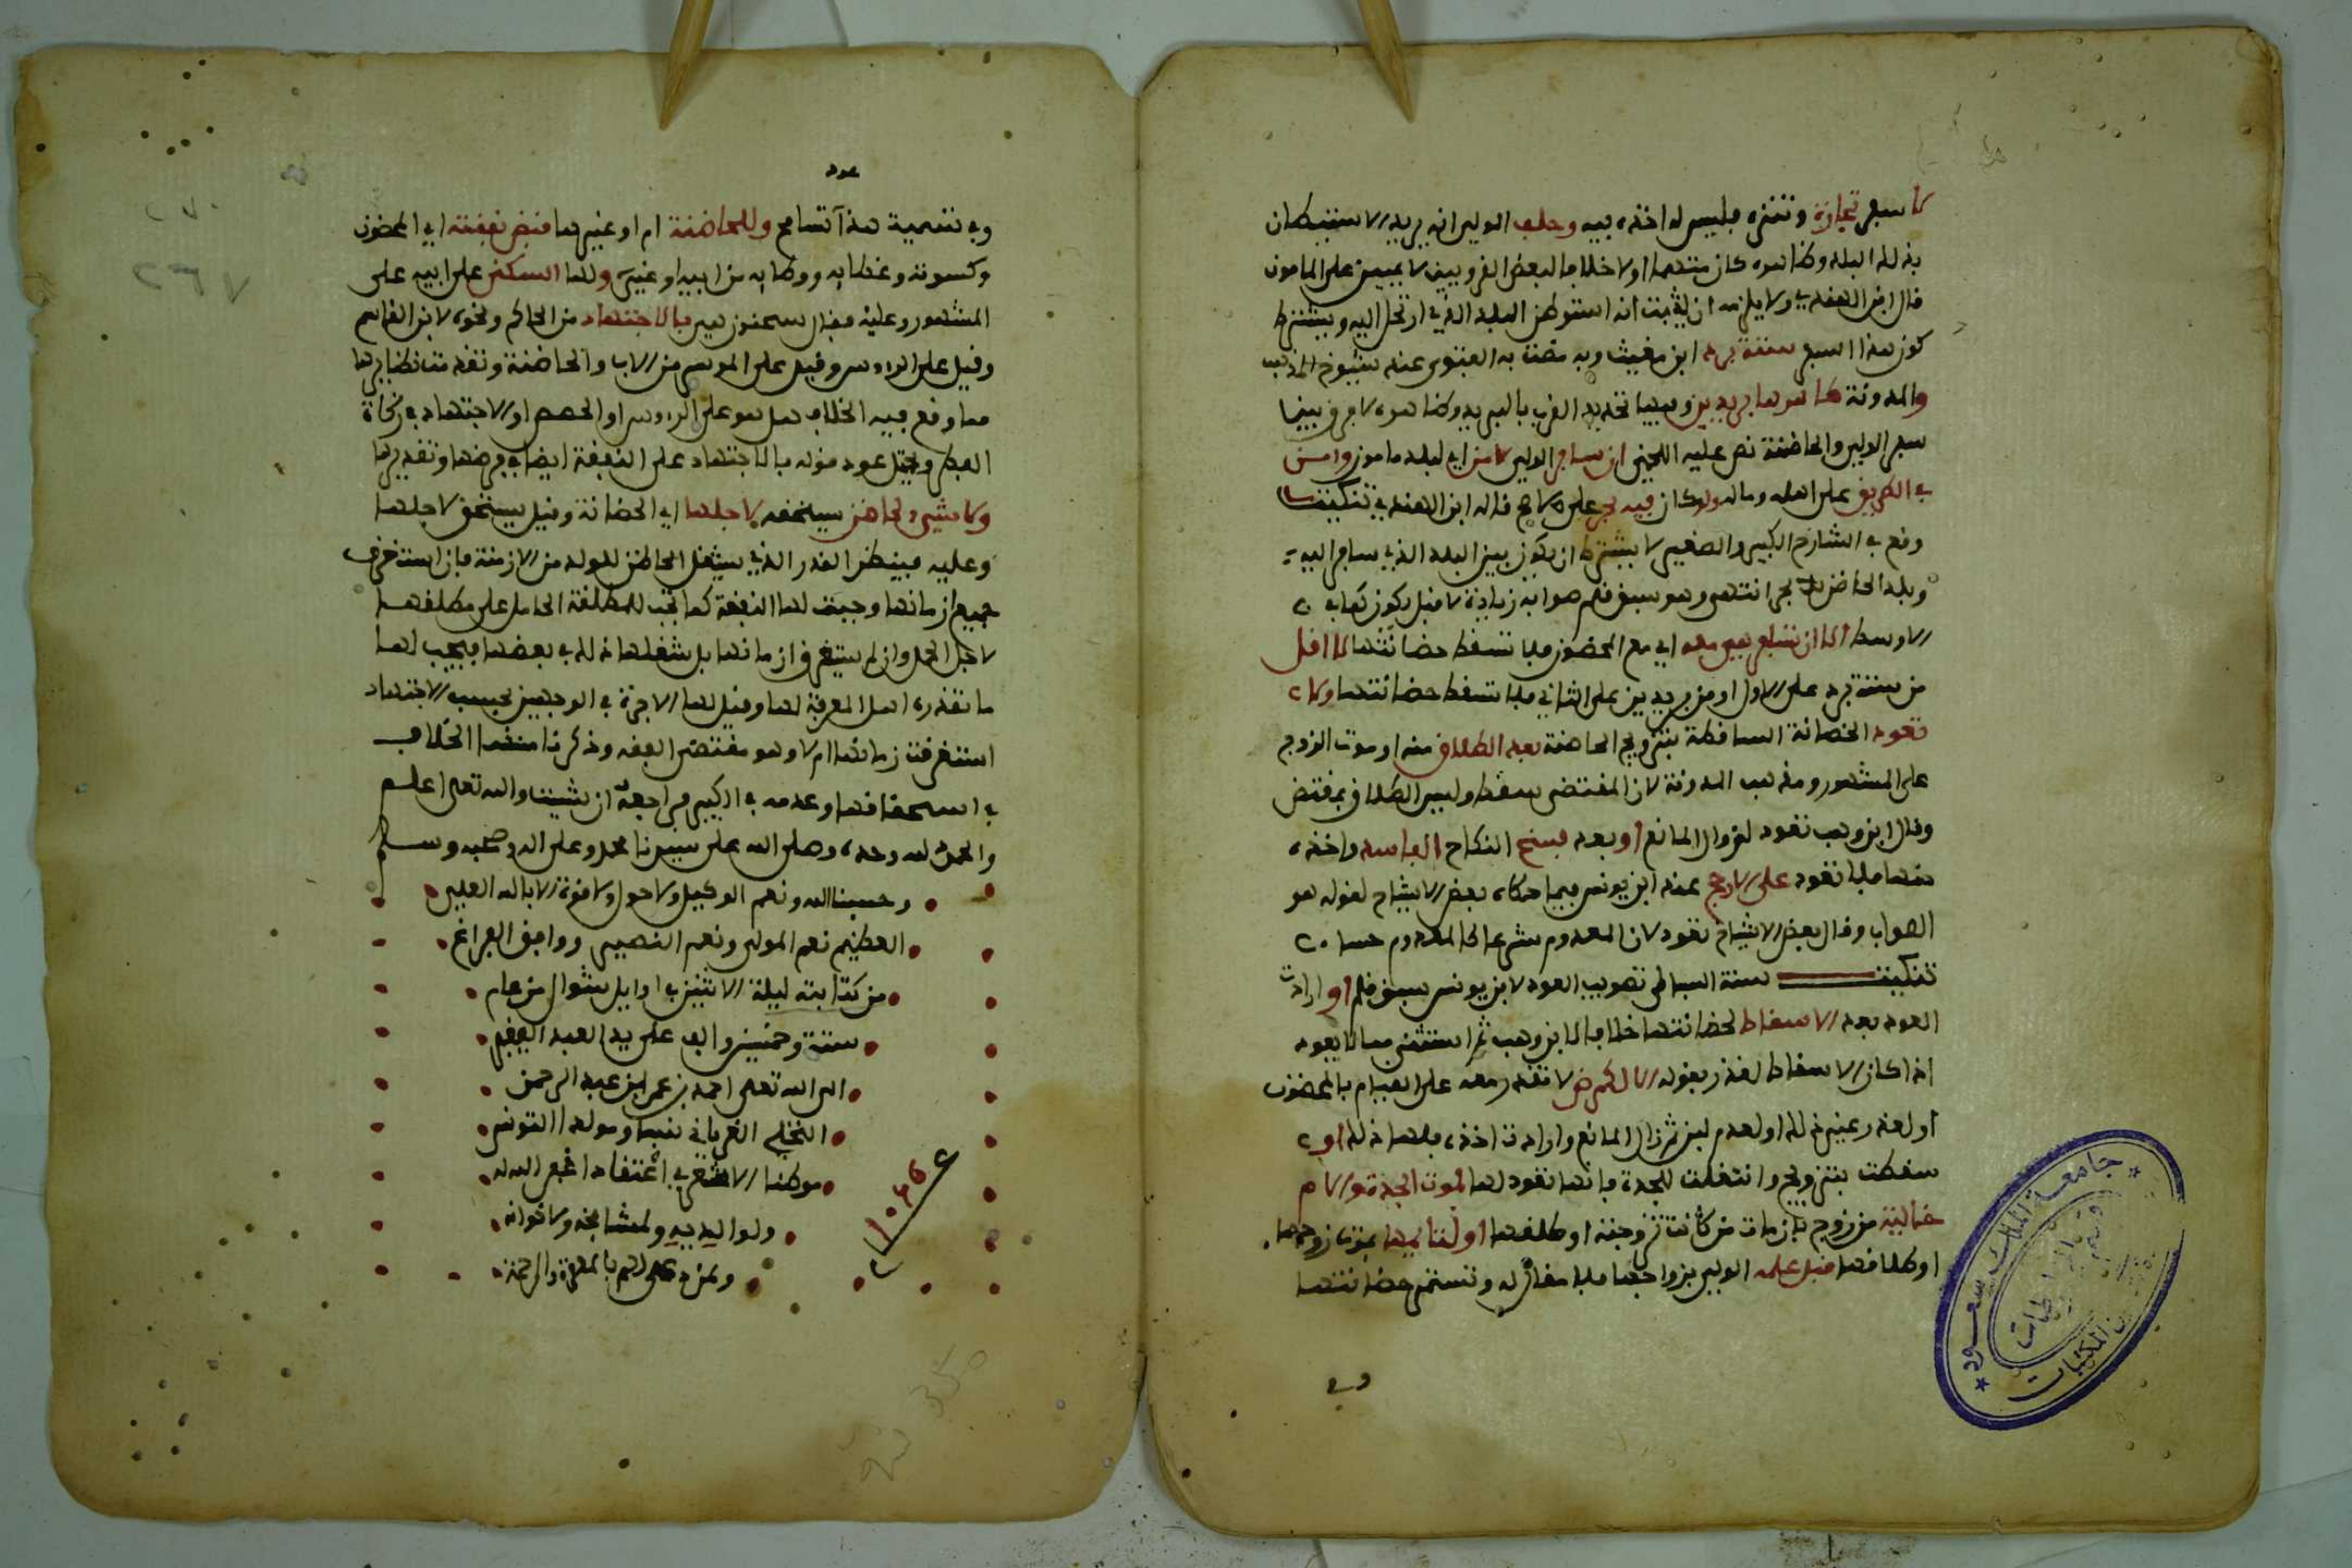 لا سفر تجارة ونزهة فليس له اخذه فيه وحلف الولي انه يريد الاستيطان
بذلك البلد وظاهره كان متهما او لا خلافا لبعض القرويين لا يمين على المامون
قال ابن الهندي ولا يلزمه ان يثبت انه استوطن البلد الذي ارتحل اليه ويشترط
كون هذا السفر ستة برد ابن مغيث وبه مضت به الفتوى عند شيوخ المذهب
والمدونة ظاهرها بريدين وفيها تحديد القرب بالبريد وظاهره لا فرق بين
سفر الولي والحاضنة نص عليه اللخمي ان سافر الولي لامن اي لبلد مامون وامن
في الطريق على اهله وماله ولو كان فيه بحر على الاصح قاله ابن الهندي تنكيت
وقع في الشارح الكبير والصغير لا يشترط ان يكون بين البلد الذي سافر اليه
وبلد الحاضن بحر انتهى وهو سبق قلم صوابه زيادة لا قبل يكون كما في
الاوسط الا ان تسافر هي معه اي مع المحضون فلا تسقط حضانتها لا اقل
من ستة برد على الاول او من بريدين على الثاني فلا تسقط حضانتها ولا
تعود الحضانة الساقطة بتزويج الحاضنة بعد الطلاق منه او موت الزوج
على المشهور ومذهب المدونة لان المقتضى سقط وليس الطلاق بمقتض
وقال ابن وهب تعود لزوال المانع او بعد فسخ النكاح الفاسد واخذه
منها فلا تعود على الارجح عند ابن يونس فيما حكاه بعض الاشياخ لقوله هو
الصواب وقال بعض الاشياخ تعود لان المعدوم شرعا كالمعدوم حسا
تنكيت نسبة البساطي تصويب العود لابن يونس سبق قلم او ارادت
العود بعد الاسقاط لحضانتها خلافا لابن وهب ثم استثنى مما لا يعود
اذا كان الاسقاط لعذر بقوله الا لكمرض لا تقدر معه على القيام بالمحضون
او لعذر غير ذلك او لعدم لبن ثم زال المانع وارادت اخذه فلها ذلك او
سقطت بتزويج وانتقلت للجدة فانها تعود لها لموت الجدة والام
خالية من زوج بان مات من كانت زوجته او طلقها او لتايمها بموت زوجها
او طلاقها قبل علمه الولي بزواجها فلا مقال له وتستمر حضانتها
وفي
عود
وفي تسمية هذا تسامح وللحاضنة ام او غيرها قبض نفقته اي المحضون
وكسوته وغطايه ووطايه من ابيه او غيره ولها السكنى على ابيه على
المشهور وعليه فقال سحنون هي بالاجتهاد من الحاكم ونحوه لابن القاسم
وقيل على الروس وقيل على الموسر من الاب والحاضنة وتقدمت نظايرها
مما وقع فيه الخلاف هل هو على الروس او الحصص او الاجتهاد في زكاة
الفطر ويحتمل عود قوله بالاجتهاد على النفقة ايضا في فرضها وتقديرها
ولا شيء لحاضن يستحقه لاجلها اي الحضانة وقيل يستحق لاجلها
وعليه فينظر القدر الذي يشغل الحاضن للولد من الازمنة فان استغرق
جميع ازمانها وجبت لها النفقة كما تجب للمطلقة الحامل على مطلقها
لاجل الحمل وان لم يستغرق ازمانها بل شغلها ذلك في بعضها فيجب لها
ما تقدره اهل المعرفة لها وقيل لها الاجرة في الوجهين بحسب الاجتهاد
استغرقت زمانها ام لا وهو مقتضى الفقه وذكرنا منشا الخلاف
في استحقاقها وعدمه في الكبير فراجعه ان شيت والله تعلى اعلم
والحمد لله وحده وصلى الله على سيدنا محمد وعلى اله وصحبه وسلم
وحسبنا الله ونعم الوكيل ولا حول ولا قوة الا بالله العلي
العظيم نعم المولى ونعم النصير ووافق الفراغ
من كتابته ليلة الاثنين في اوايل شوال من عام
ستة وخمسين والف على يد العبد الفقير
الى الله تعلى احمد بن عمر ابن عبد الرحمن
الغرياني نسبا ومولدا التونسي
موطنا الاشعري اعتقادا غفر الله له
ولوالديه ولمشايخه ولاخوانه
ولمن دعى لهم بالمغفرة والرحمة
١٠٥٦
٢٦٧
جامعة الملك سعود
قسم المخطوطات
المكتبات